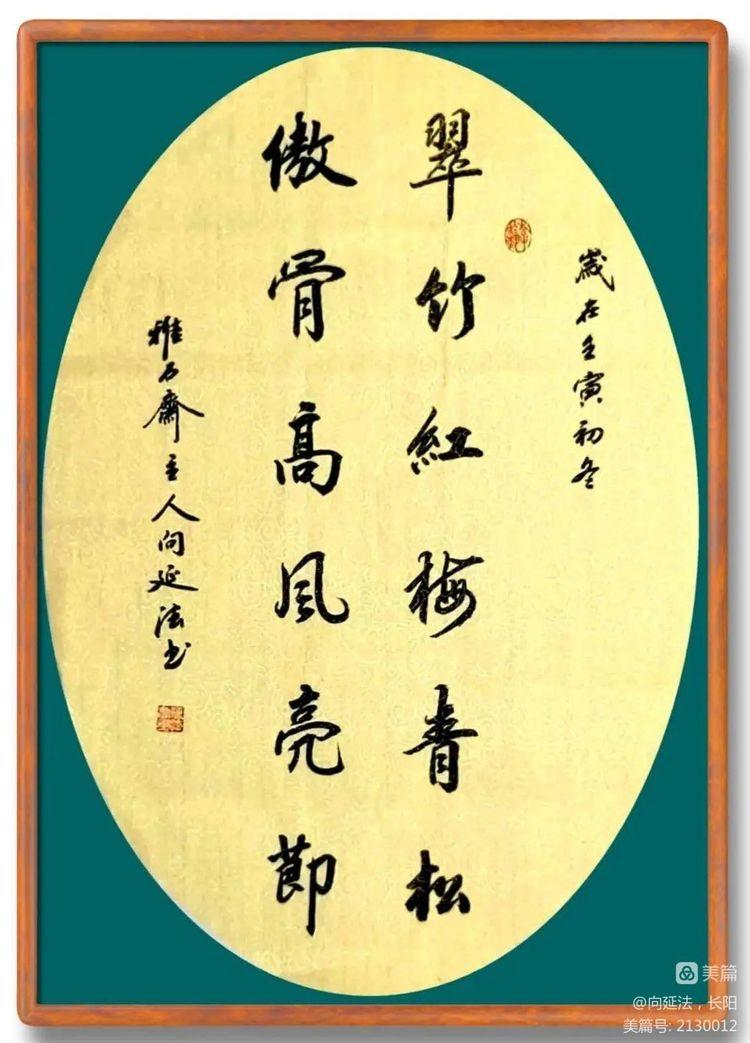 歲在壬寅初冬
翠竹紅梅青松
傲骨高風亮節
雅石齋主人向延法书
美篇
@向延法，长阳
美篇号: 2130012